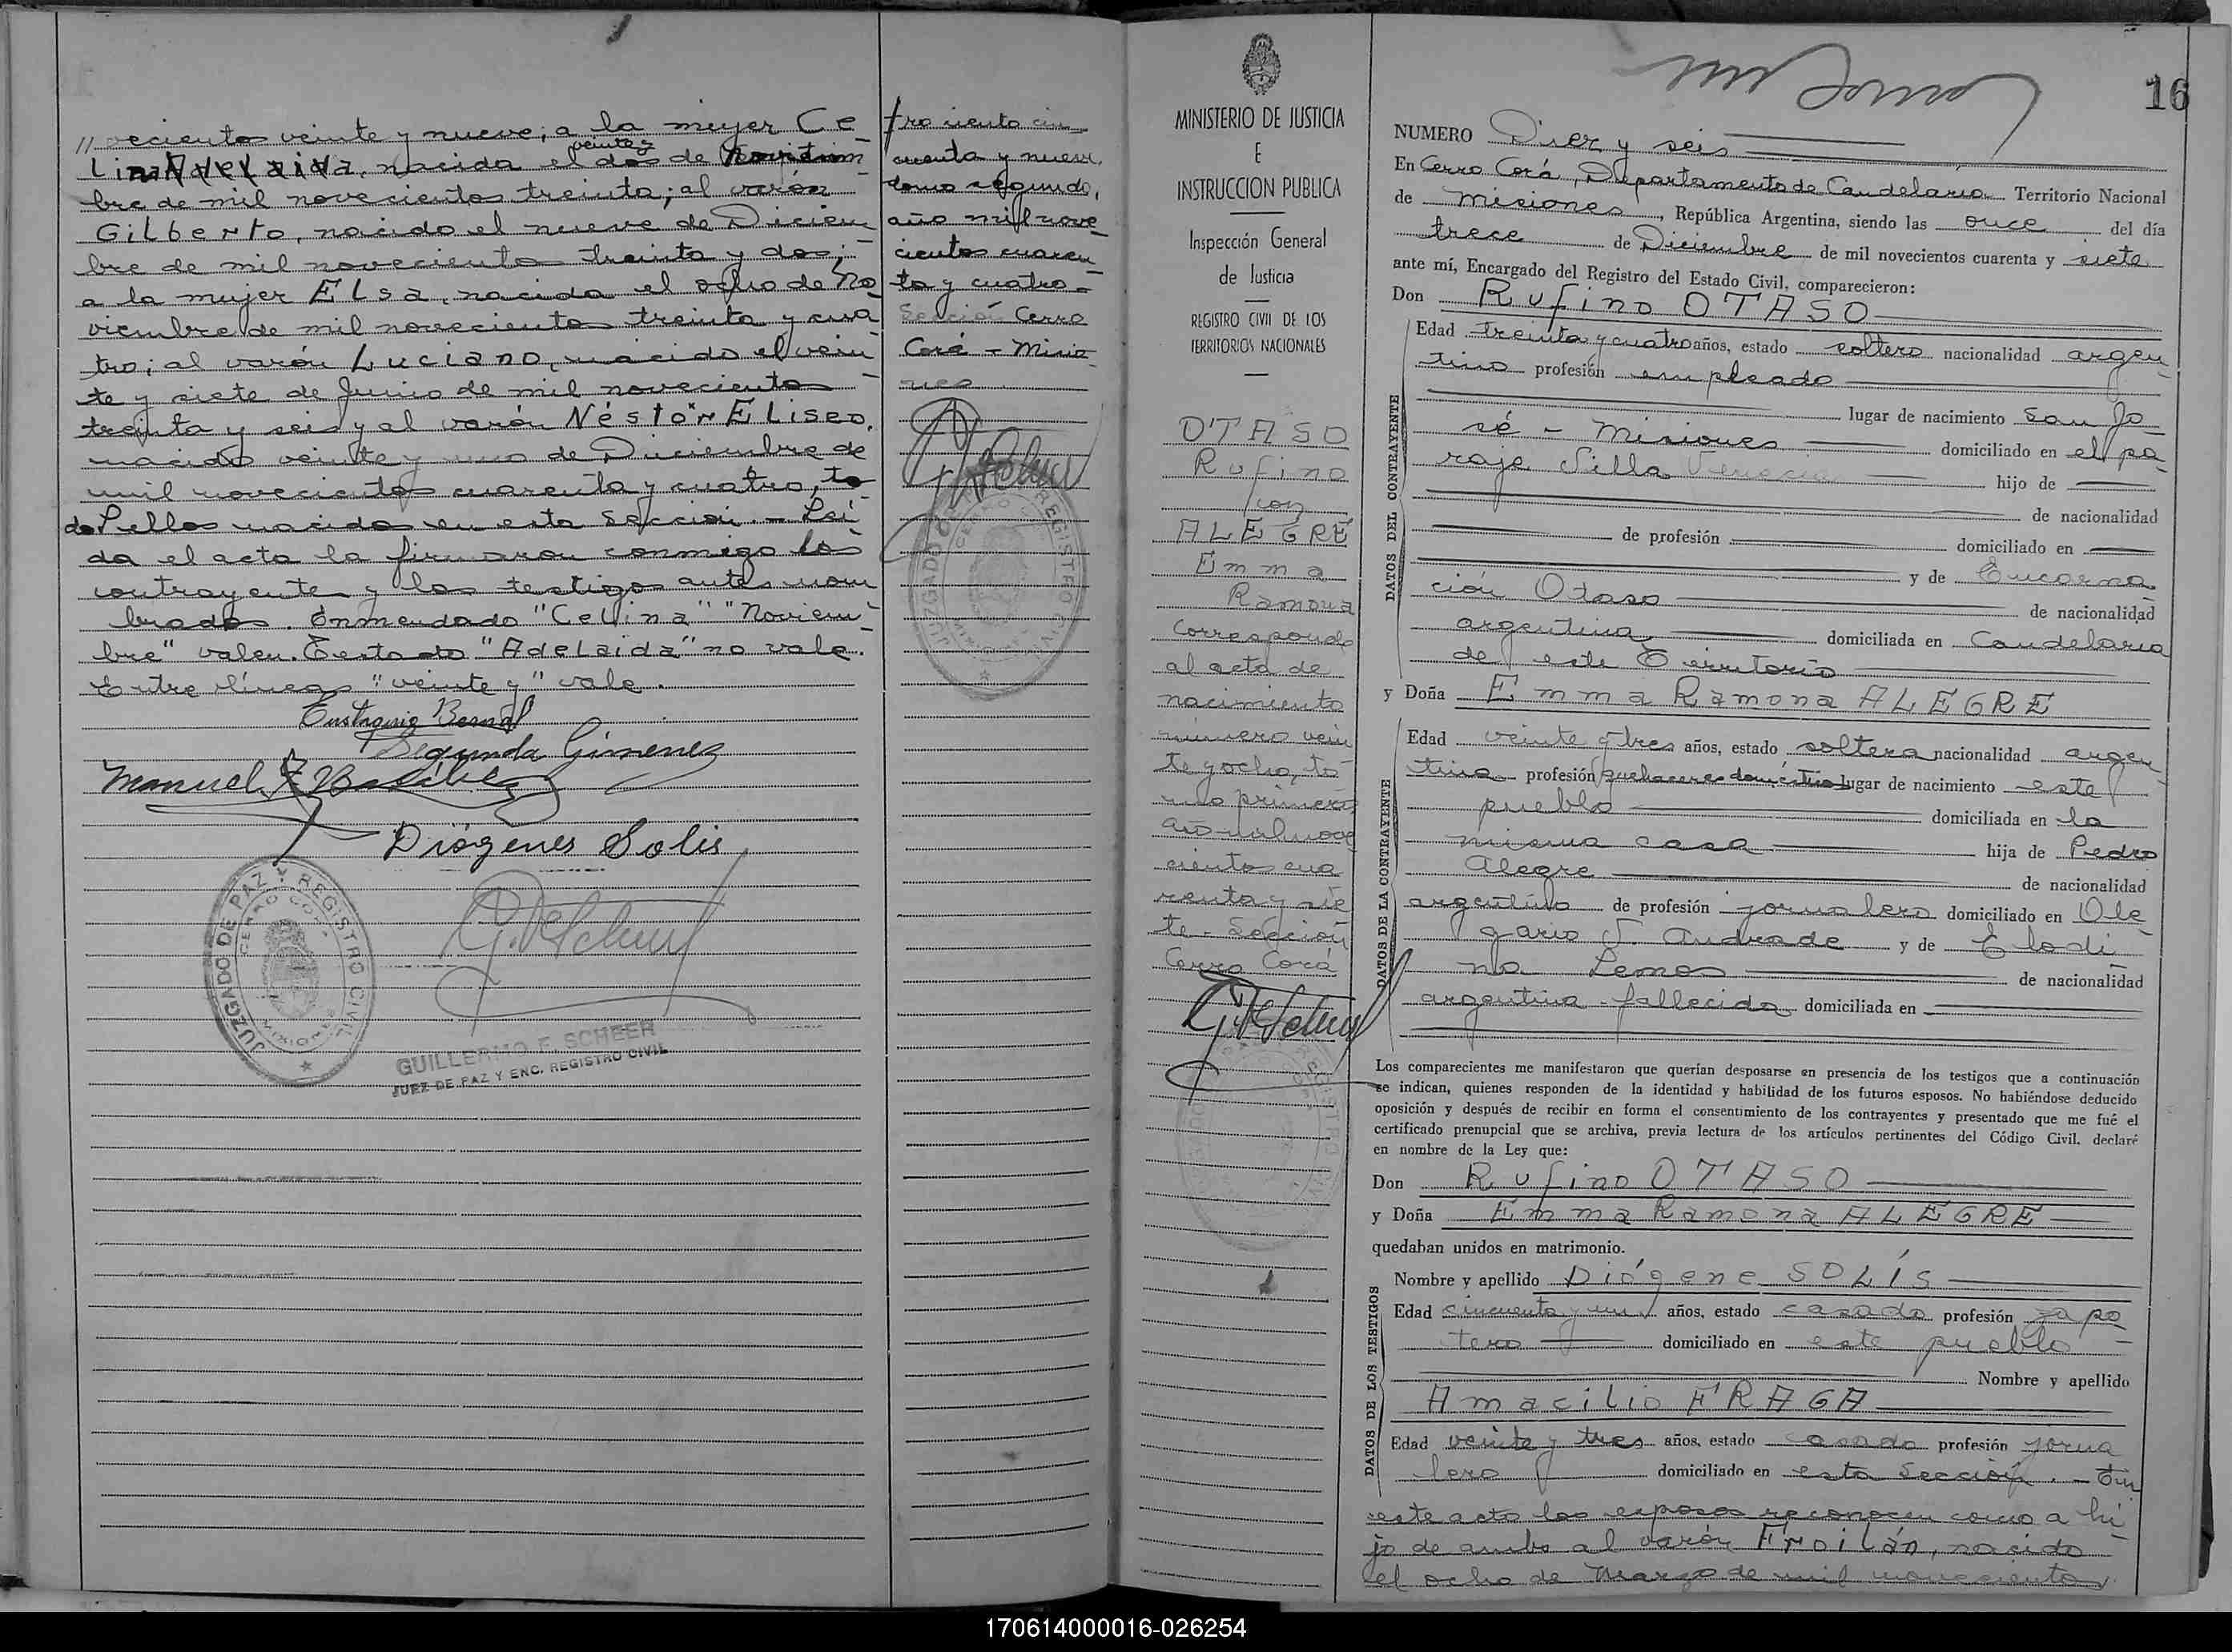 // vecientos veinte y nueve; a la mujer Ce
lina Adelaida, nacida el veinte y dos de Noviem
bre de mil novecientos treinta; al varón
Gilberto, nacido el nueve de Diciem
bre de mil novecientos treinta y dos;
a la mujer Elsa, nacida el ocho de No
viembre de mil novecientos treinta y cua
tro; al varón Luciano, nacido el vein
te y siete de Junio de mil novecientos
treinta y seis y al varón Néstor Eliseo,
nacido veinte y uno de Diciembre de
mil novecientos cuarenta y cuatro, to
dos ellos nacidos en esta Sección. - Leí
da el acta la firmaron conmigo los
contrayentes y los testigos antes nom
brados. Enmendado "Celina" "Noviem
bre" valen. Testado "Adelaida" no vale.
Entre líneas "veinte y" vale.
Eustaquio Bernal
Segunda Gimenez
Manuel
Diógenes Solis
JUZGADO DE PAZ Y REGISTRO CIVIL
CERRO CORA
MISIONES
G. F. Scheer
GUILLERMO F. SCHEER
JUEZ DE PAZ Y ENC. REGISTRO CIVIL
tro ciento cin
cuenta y nueve,
tomo segundo,
año mil nove
cientos cuaren
ta y cuatro -
Sección Cerro
Corá - Misio
nes
MINISTERIO DE JUSTICIA
E
INSTRUCCION PUBLICA
Inspección General
de Justicia
REGISTRO CIVIL DE LOS
TERRITORIOS NACIONALES
OTASO
Rufino
con
ALEGRE
Emma
Ramona
Corresponde
al acta de
nacimiento
número vein
te y ocho, to
mo primero
año mil nove
cientos cua
renta y sie
te - Sección
Cerro Corá
16
NUMERO Diez y seis
En Cerro Corá, Departamento de Candelaria Territorio Nacional
de Misiones, República Argentina, siendo las once del día
trece de Diciembre de mil novecientos cuarenta y siete
ante mí, Encargado del Registro del Estado Civil, comparecieron:
Don Rufino OTASO
DATOS DEL CONTRAYENTE
Edad treinta y cuatro años, estado soltero nacionalidad argen
tino profesión empleado
lugar de nacimiento San Jo
sé - Misiones domiciliado en el pa
raje Villa Venecia hijo de
de nacionalidad
de profesión domiciliado en
y de Encarna
ción Otaso de nacionalidad
argentina domiciliada en Candelaria
de este Territorio
y Doña Emma Ramona ALEGRE
DATOS DE LA CONTRAYENTE
Edad veinte y tres años, estado soltera nacionalidad argen
tina profesión quehaceres domésticos lugar de nacimiento este
pueblo domiciliada en la
misma casa hija de Pedro
Alegre de nacionalidad
argentino de profesión jornalero domiciliado en Ole
gario V. Andrade y de Elodi
na Lemos de nacionalidad
argentina - fallecida domiciliada en
Los comparecientes me manifestaron que querían desposarse en presencia de los testigos que a continuación
se indican, quienes responden de la identidad y habilidad de los futuros esposos. No habiéndose deducido
oposición y después de recibir en forma el consentimiento de los contrayentes y presentado que me fué el
certificado prenupcial que se archiva, previa lectura de los artículos pertinentes del Código Civil, declaré
en nombre de la Ley que:
Don Rufino OTASO
y Doña Emma Ramona ALEGRE
quedaban unidos en matrimonio.
DATOS DE LOS TESTIGOS
Nombre y apellido Diógene SOLÍS
Edad cincuenta y un años, estado casado profesión zapa
tero domiciliado en este pueblo
Nombre y apellido
Amacilio FRAGA
Edad veinte y tres años, estado casado profesión jorna
lero domiciliado en esta Sección. - En
este acto los esposos reconocen como a hi
jo de ambos al varón Froilán, nacido
el ocho de Marzo de mil novecientos
170614000016-026254